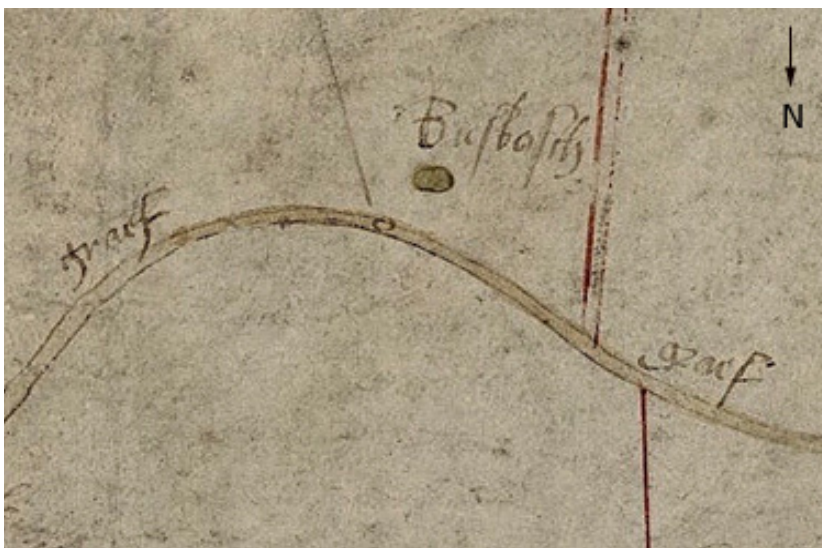 N
Busbosch
graef
graef